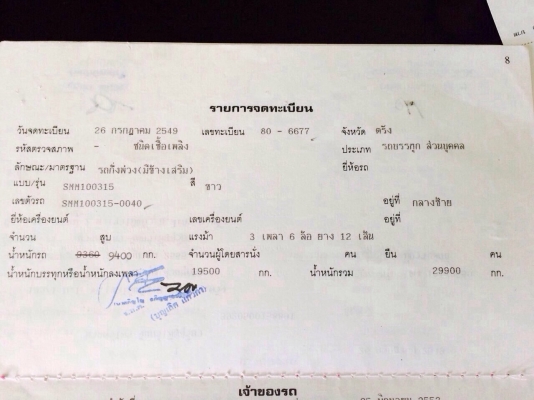 8
รายการจดทะเบียน
วันจดทะเบียน 26 กรกฎาคม 2549 เลขทะเบียน 80 - 6677 จังหวัด ตรัง
รหัสตรวจสภาพ - ชนิดเชื้อเพลิง ประเภท รถบรรทุก ส่วนบุคคล
ลักษณะ/มาตรฐาน รถกึ่งพ่วง(มีข้างเสริม) ยี่ห้อรถ
แบบ/รุ่น SMM100315 สี ขาว
เลขตัวรถ SMM100315-0040 อยู่ที่ กลางซ้าย
ยี่ห้อเครื่องยนต์ เลขเครื่องยนต์ อยู่ที่
จำนวน สูบ แรงม้า 3 เพลา 6 ล้อ ยาง 12 เส้น
น้ำหนักรถ 9360 9400 กก. จำนวนผู้โดยสารนั่ง คน ยืน คน
น้ำหนักบรรทุกหรือน้ำหนักลงเพลา 19500 กก. น้ำหนักรวม 29900 กก.
เจ้าของรถ